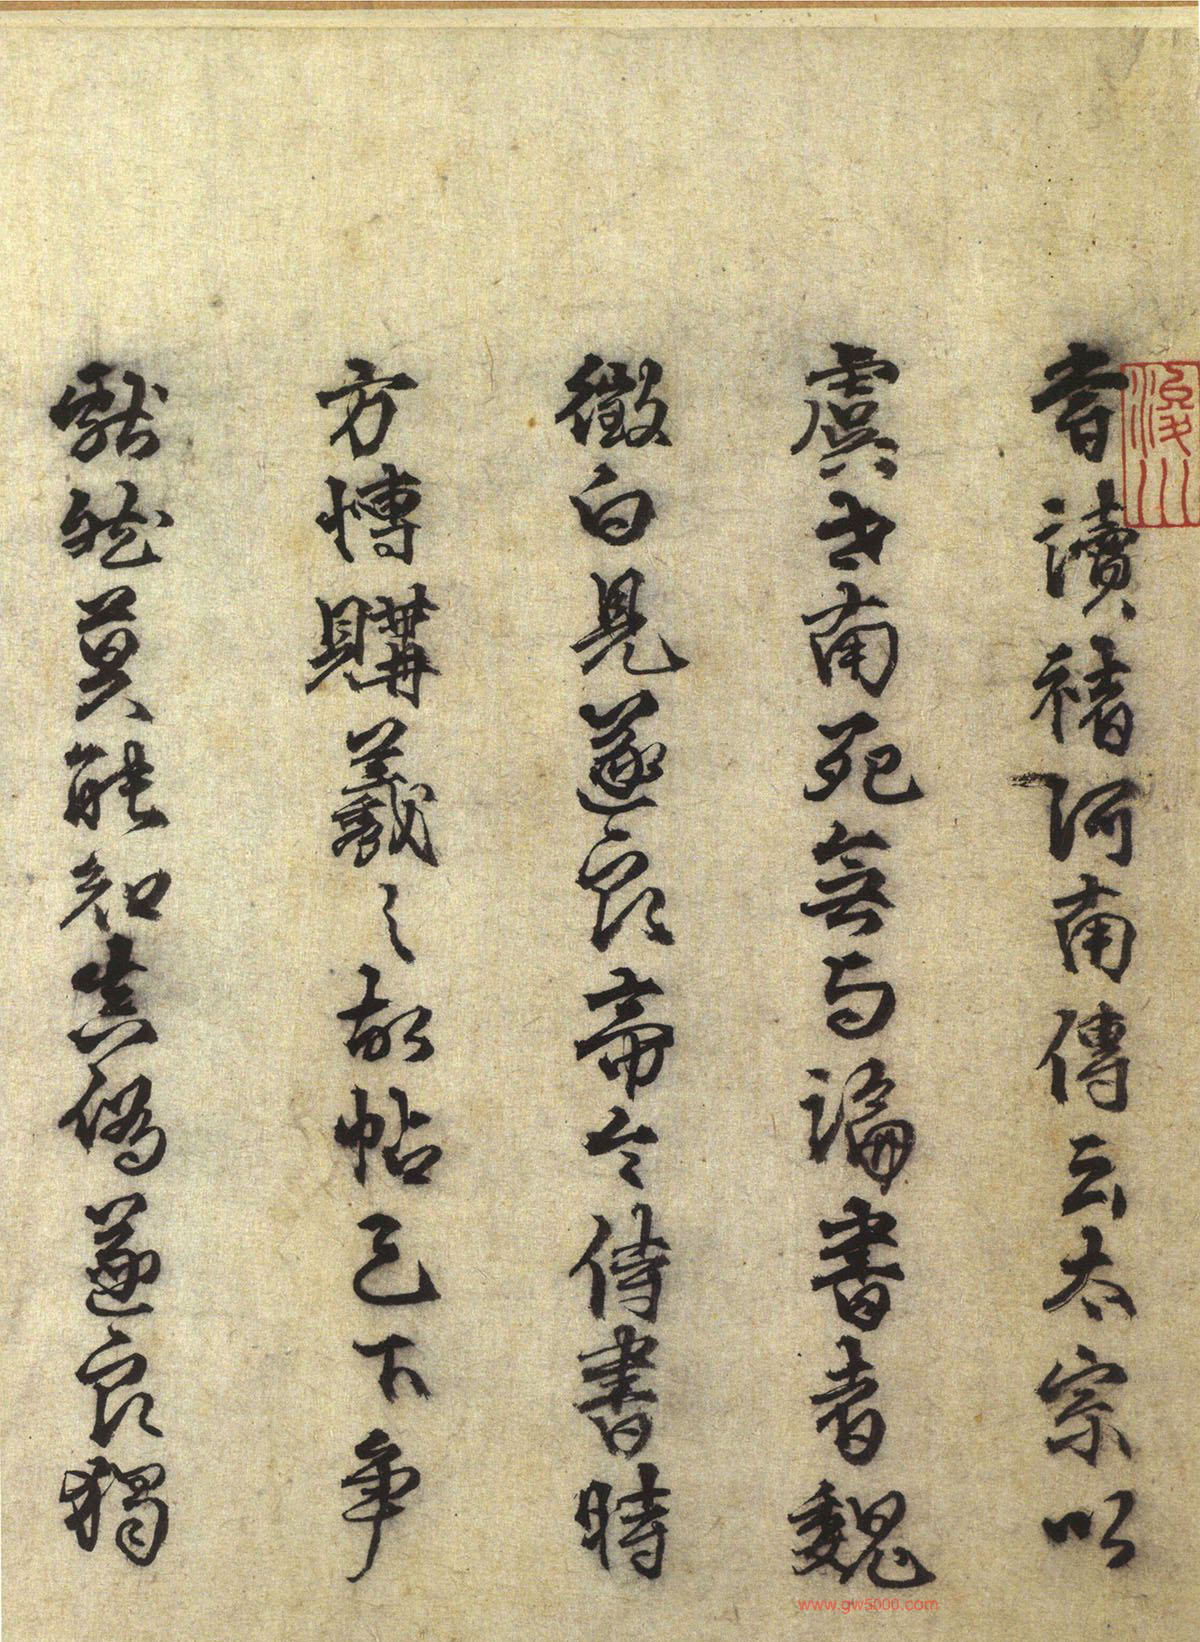 昔讀褚河南傳云太宗以
虞世南死無与論書者魏
徵白見遂良帝令侍書時
方博購羲之故帖天下争
獻然莫能知真偽遂良獨
www.gw5000.com